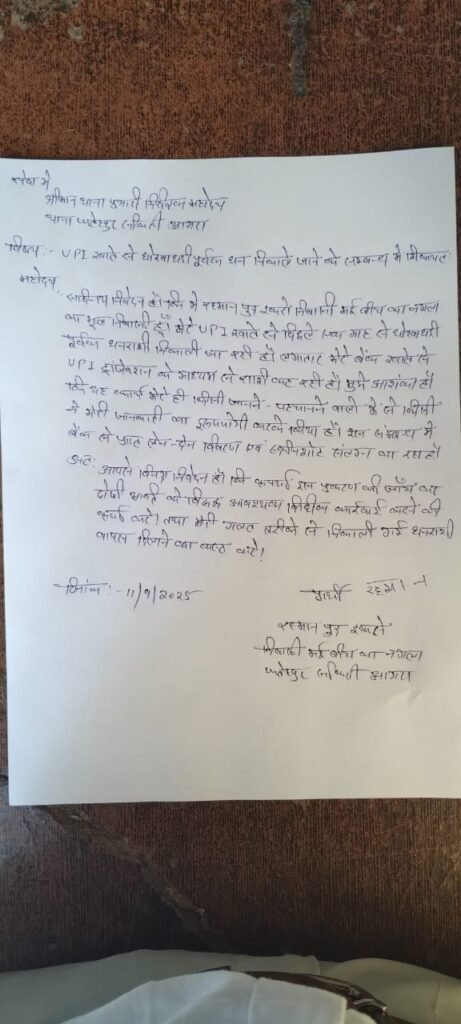 सेवा में
श्रीमान थाना प्रभारी निरीक्षक महोदय
थाना फतेहपुर सीकरी आगरा
विषय:- UPI खाते से धोखाधड़ी पूर्वक धन निकाले जाने के सम्बन्ध में शिकायत:
महोदय,
सविनय निवेदन है कि मैं रहमान पुत्र निवासी नई बीच का नगला
का मूल निवासी हूँ मेरे UPI खाते से पिछले एक माह से धोखाधड़ी
पूर्वक धनराशी निकाली जा रही है। लगातार मेरे बैंक खाते से
UPI ट्रांजेक्शन के माध्यम से राशी कट रही है। मुझे आशंका है
कि यह कार्य मेरे ही किसी जानने - पहचानने वालो में से किसी
ने मेरी जानकारी का करके किया है। इस संबन्ध में
बैंक से प्राप्त लेन-देन विवरण एवं स्क्रीनशॉट संलग्न कर रहा हूँ
अत: आपसे विनम्र निवेदन है कि कृपया इस प्रकरण की जाँच कर
दोषी के विरुद्ध आवश्यक विधिक कार्रवाई करने की
करे! तथा मेरी गलत तरीके से निकाली गई धनराशी
वापस का करे!
दिनांक:- 11/9/2025
प्रार्थी रहमान
रहमान पुत्र
निवासी नई बीच का नगला
फतेहपुर सीकरी आगरा